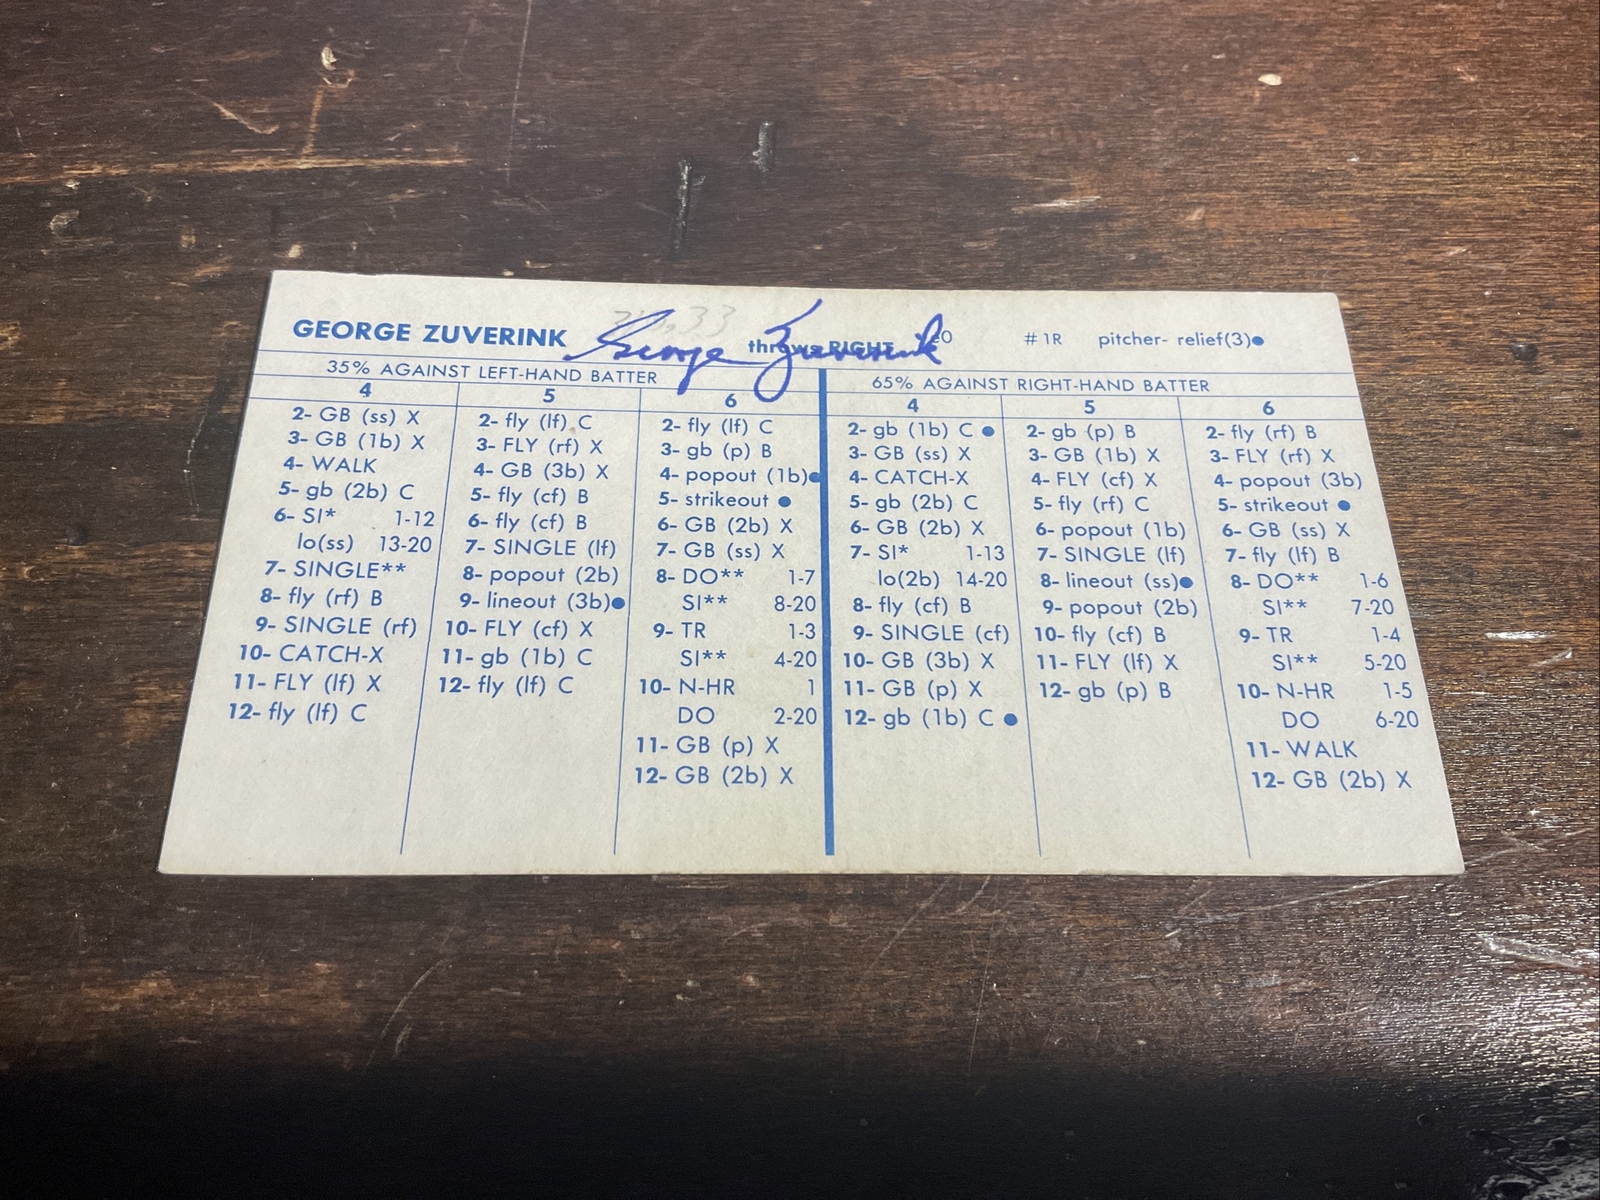 GEORGE ZUVERINK George Zuverink throws RIGHT #1R pitcher- relief(3)●
35% AGAINST LEFT-HAND BATTER
4
2- GB (ss) X
3- GB (1b) X
4- WALK
5- gb (2b) C
6- SI* 1-12
lo(ss) 13-20
7- SINGLE**
8- fly (rf) B
9- SINGLE (rf)
10- CATCH-X
11- FLY (lf) X
12- fly (lf) C
5
2- fly (lf) C
3- FLY (rf) X
4- GB (3b) X
5- fly (cf) B
6- fly (cf) B
7- SINGLE (lf)
8- popout (2b)
9- lineout (3b)●
10- FLY (cf) X
11- gb (1b) C
12- fly (lf) C
6
2- fly (lf) C
3- gb (p) B
4- popout (1b)●
5- strikeout ●
6- GB (2b) X
7- GB (ss) X
8- DO** 1-7
SI** 8-20
9- TR 1-3
SI** 4-20
10- N-HR 1
DO 2-20
11- GB (p) X
12- GB (2b) X
65% AGAINST RIGHT-HAND BATTER
4
2- gb (1b) C ●
3- GB (ss) X
4- CATCH-X
5- gb (2b) C
6- GB (2b) X
7- SI* 1-13
lo(2b) 14-20
8- fly (cf) B
9- SINGLE (cf)
10- GB (3b) X
11- GB (p) X
12- gb (1b) C ●
5
2- gb (p) B
3- GB (1b) X
4- FLY (cf) X
5- fly (rf) C
6- popout (1b)
7- SINGLE (lf)
8- lineout (ss)●
9- popout (2b)
10- fly (cf) B
11- FLY (lf) X
12- gb (p) B
6
2- fly (rf) B
3- FLY (rf) X
4- popout (3b)
5- strikeout ●
6- GB (ss) X
7- fly (lf) B
8- DO** 1-6
SI** 7-20
9- TR 1-4
SI** 5-20
10- N-HR 1-5
DO 6-20
11- WALK
12- GB (2b) X